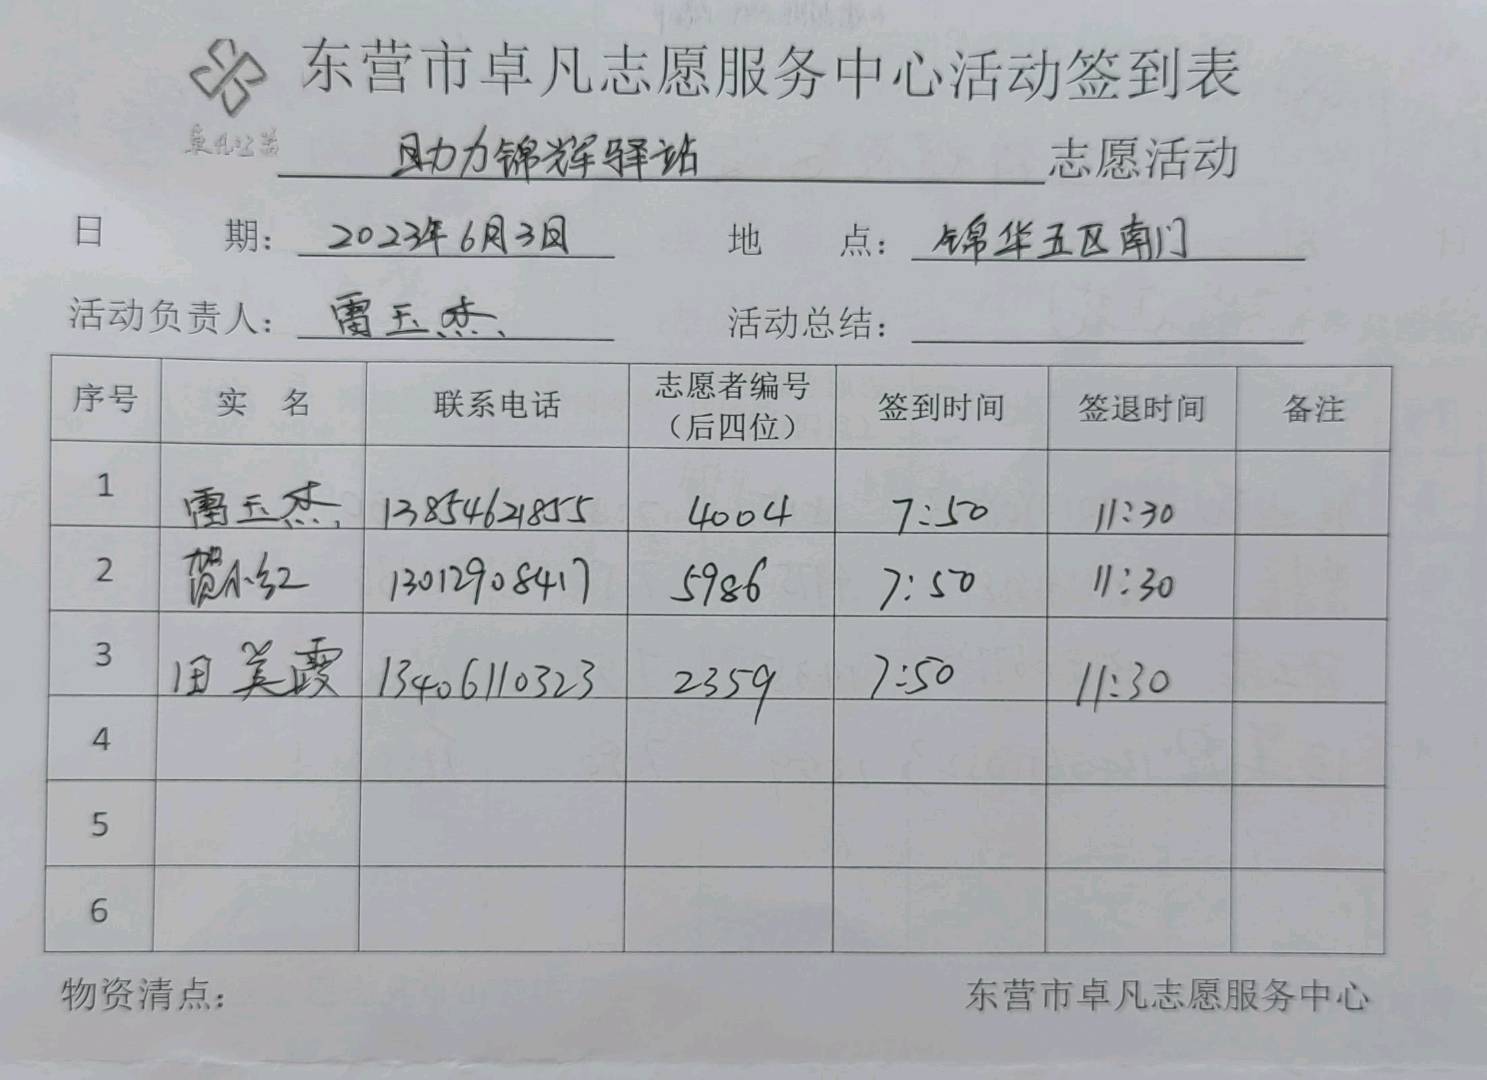 东营市卓凡志愿服务中心活动签到表
卓凡公益
助力锦辉驿站 志愿活动
日 期： 2023年6月3日 地 点： 锦华五区南门
活动负责人： 雷玉杰 活动总结：
序号 实 名 联系电话 志愿者编号（后四位） 签到时间 签退时间 备注
1 雷玉杰 13854621855 4004 7:50 11:30
2 贺小红 13012908417 5986 7:50 11:30
3 田美霞 13406110323 2359 7:50 11:30
4
5
6
物资清点： 东营市卓凡志愿服务中心